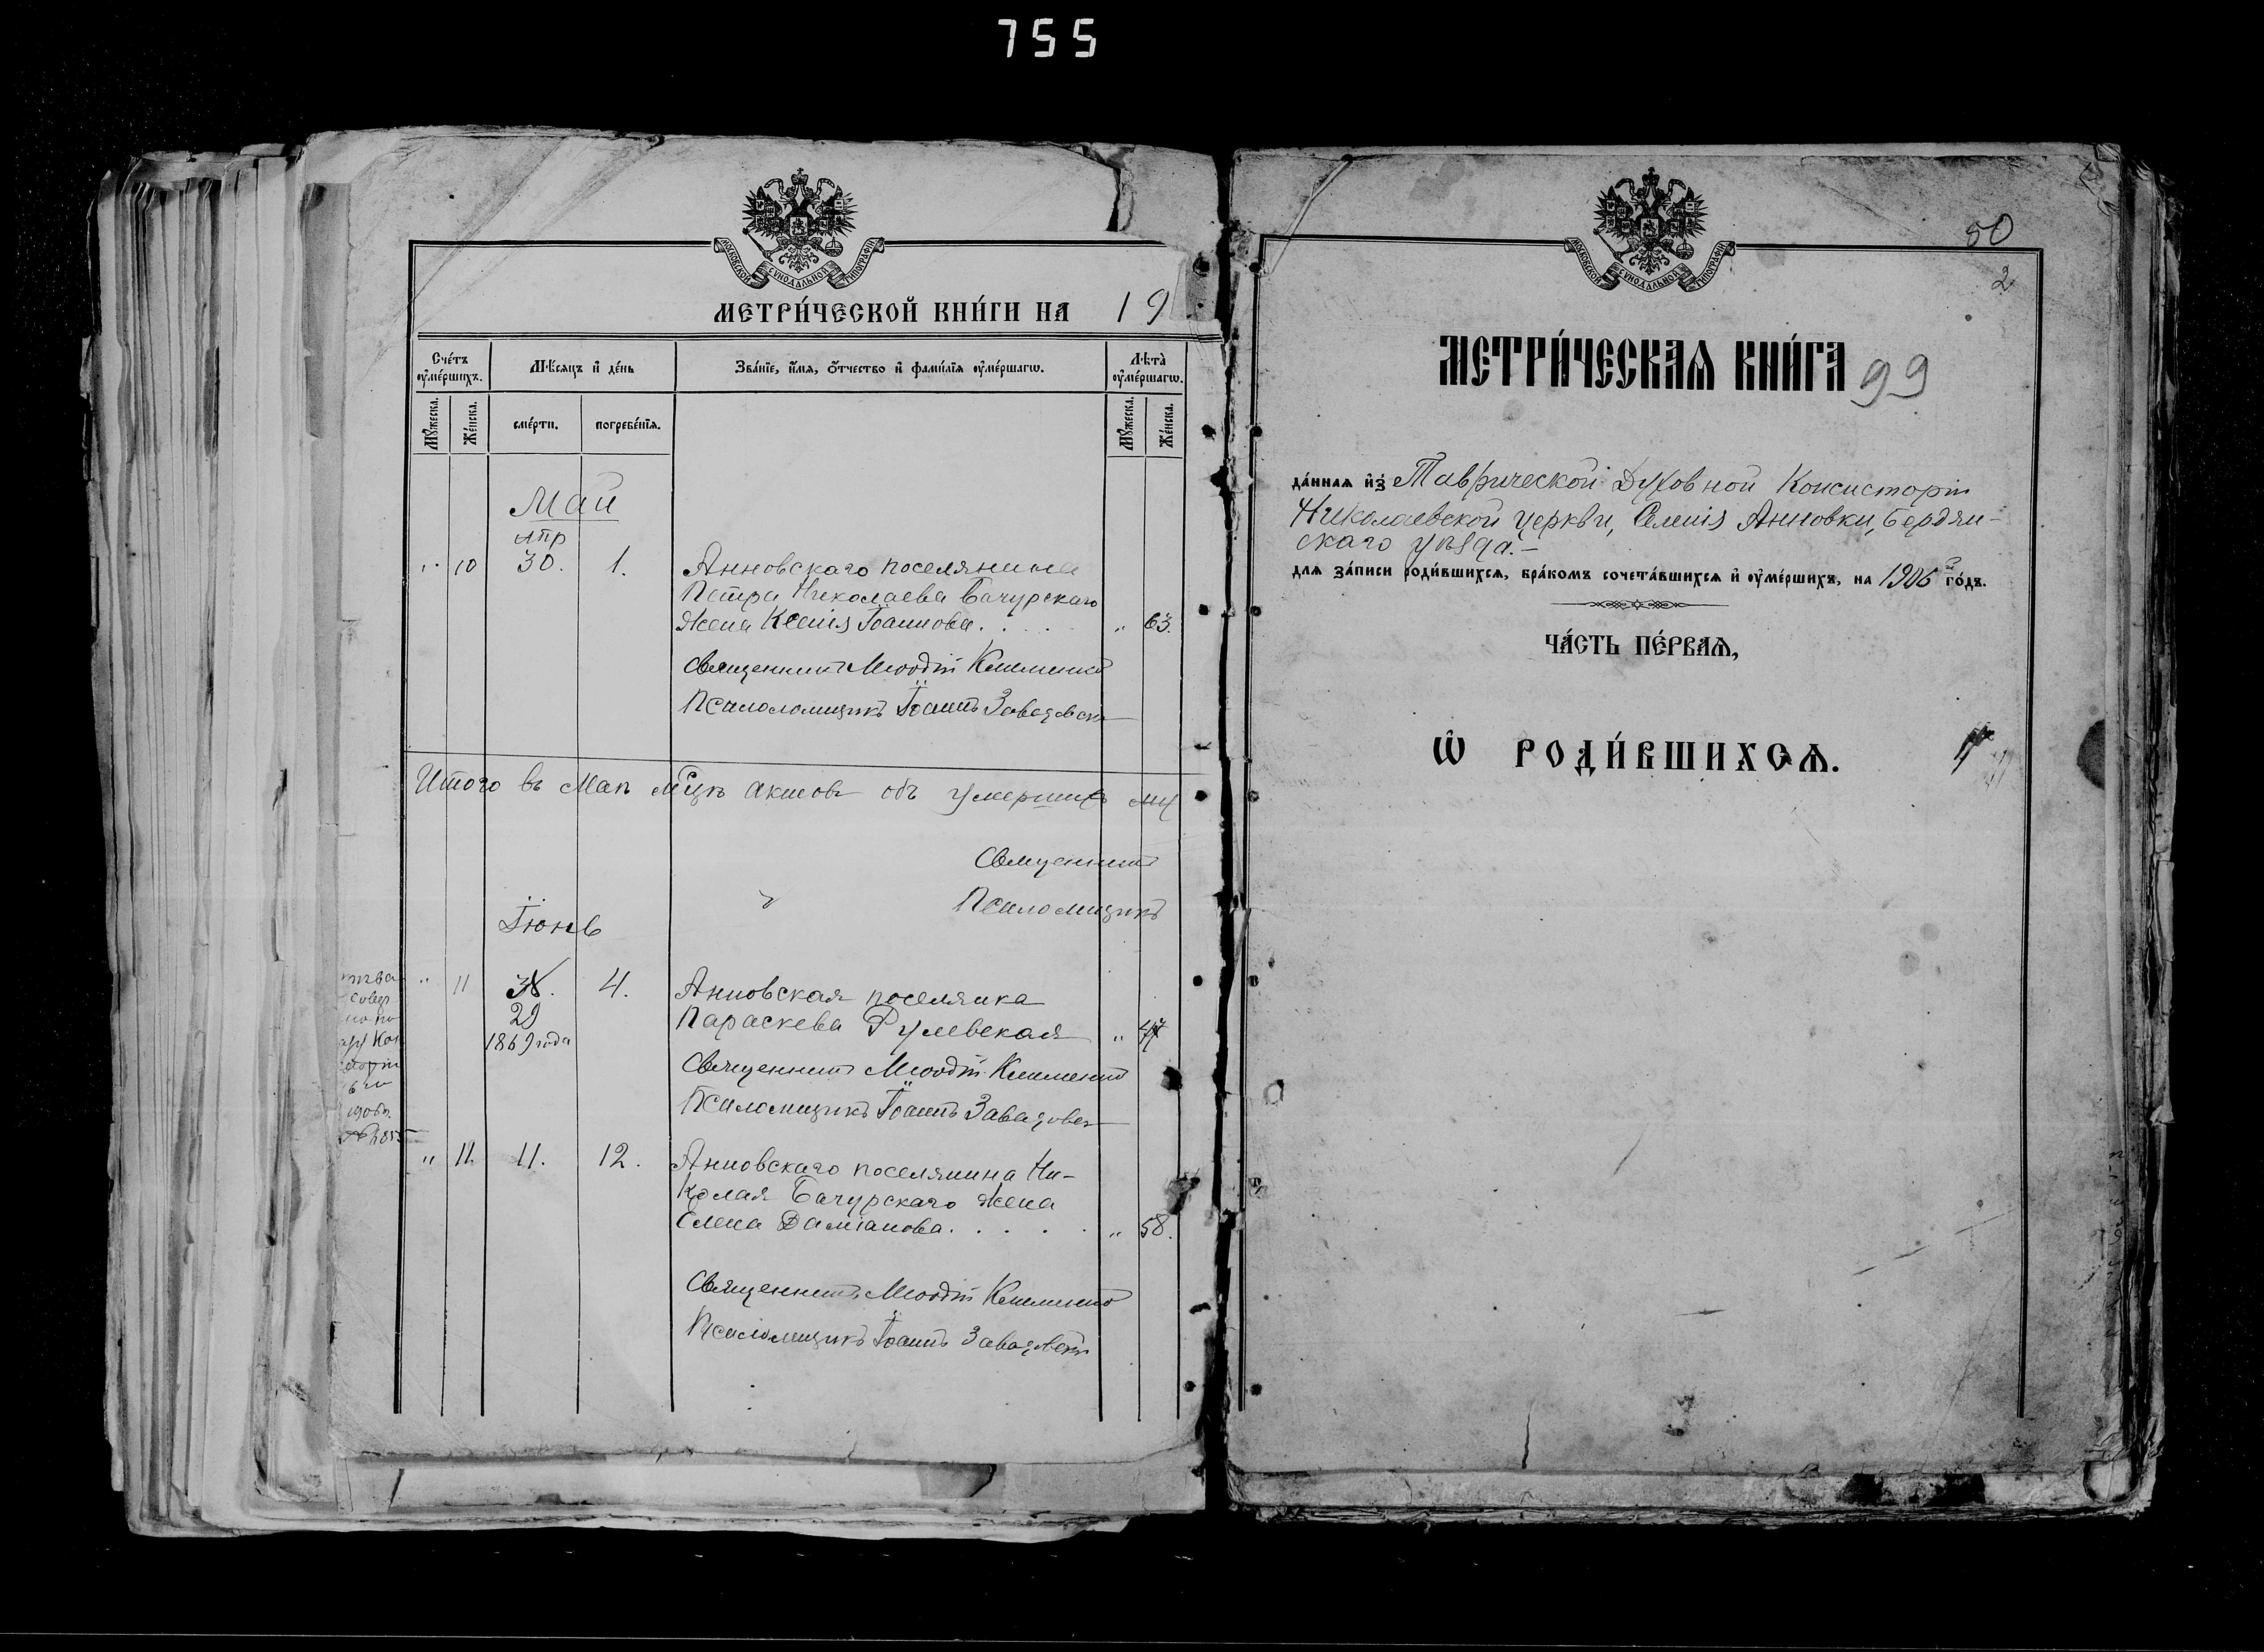 755
МОСКОВСКОЙ СѴНОДАЛЬНОЙ ТИПОГРАФІИ
МЕТРИ́ЧЕСКОЙ КНИ́ГИ НА 19
Сче́тъ ᲂу҆ме́ршихъ.
Мѣ́сяцъ и҆ де́нь
Зва́нїе, и҆́мя, ѻ҆́тчество и҆ фами́лїя ᲂу҆ме́ршагѡ.
Лѣта̀ ᲂу҆ме́ршагѡ.
Мꙋ́жеска.
Же́нска.
сме́рти.
погребе́нїя.
Мꙋ́жеска.
Же́нска.
Май
апр
" 10 30. 1. Анновскаго поселянина
Петра Николаева Бачурскаго
жена Ксенія Іоаннова. . . . " 63.
Священникъ Меѳодій Клименко
Псаломщикъ Іоаннъ Завадовскі
Итого въ Маѣ мцѣ актовъ объ умершихъ
Священникъ
Псаломщикъ
Іюнь
" 11 4. Анновская поселянка
29 Параскева Рулевская "
1869 года
Священникъ Меѳодій Клименко
Псаломщикъ Іоаннъ Завадовск
" 11. 11. 12. Анновскаго поселянина Ни-
колая Бачурскаго жена
Елена Даміанова. . . . . " 58.
Священникъ Меѳодій Клименко
Псаломщикъ Іоаннъ Завадовскі
МОСКОВСКОЙ СѴНОДАЛЬНОЙ ТИПОГРАФІИ
50
2
МЕТРИ́ЧЕСКАѦ КНИ́ГА 99
да́нная и҆з̾ Таврической Духовной Консисторіи
Николаевской церкви, Селенія Анновки, Бердян-
скаго уѣзда.-
для за́писи роди́вшихся, бра́комъ сочета́вшихся и҆ ᲂу҆ме́ршихъ, на 1906 й го́дъ.
ЧА́СТЬ ПЕ́РВАѦ,
Ѽ РОДИ́ВШИХСѦ.